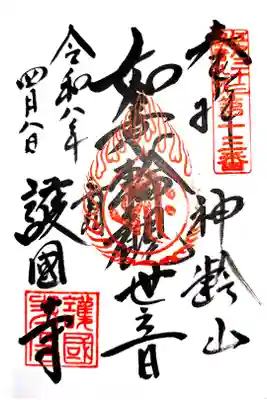 第十三番
奉拝 神齢山
如意輪観世音
令和八年
四月八日
護國寺
護國